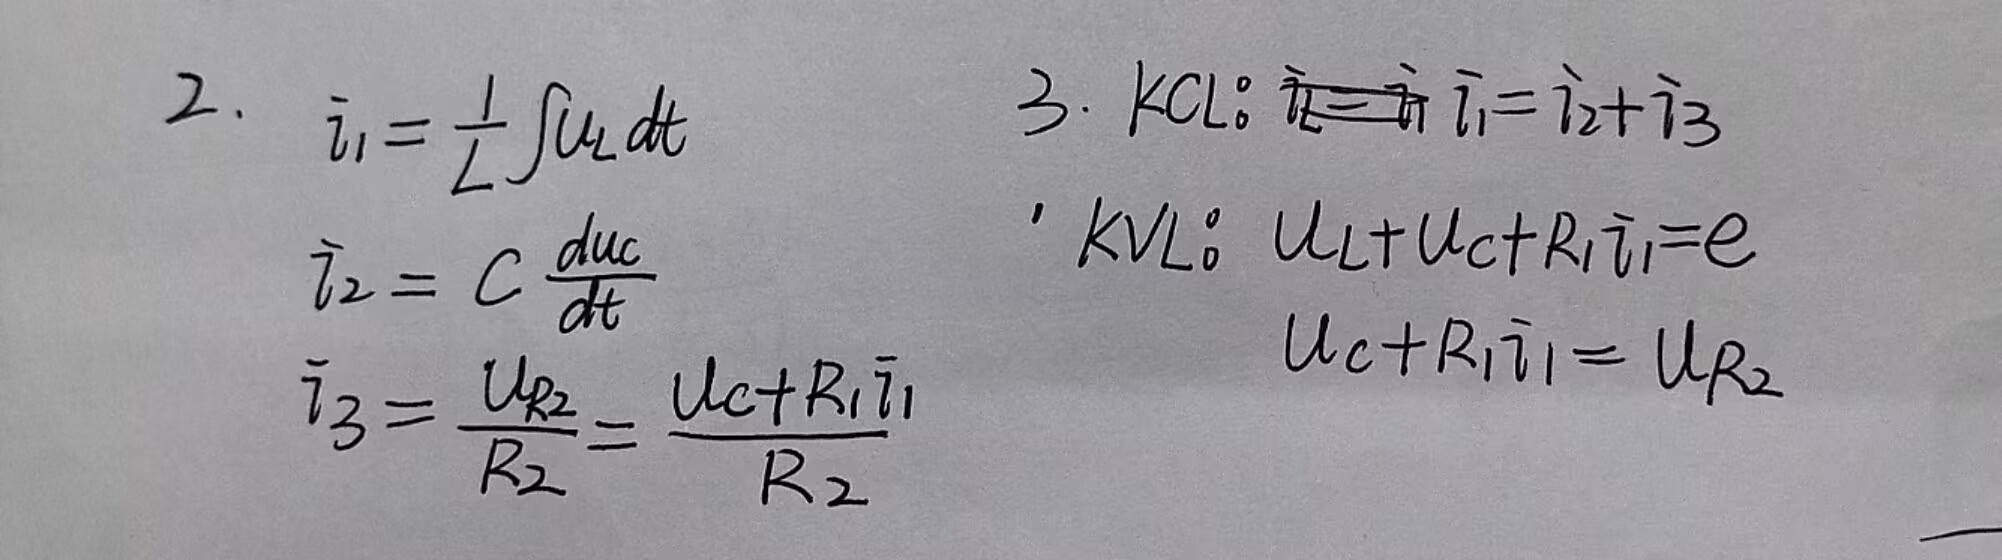 2. i₁ = 1/L ∫u_L dt
i₂ = C du_c/dt
i₃ = u_R₂/R₂ = (u_c+R₁i₁)/R₂
3. KCL: i₁=i₂+i₃
KVL: u_L+u_c+R₁i₁=e
u_c+R₁i₁=u_R₂